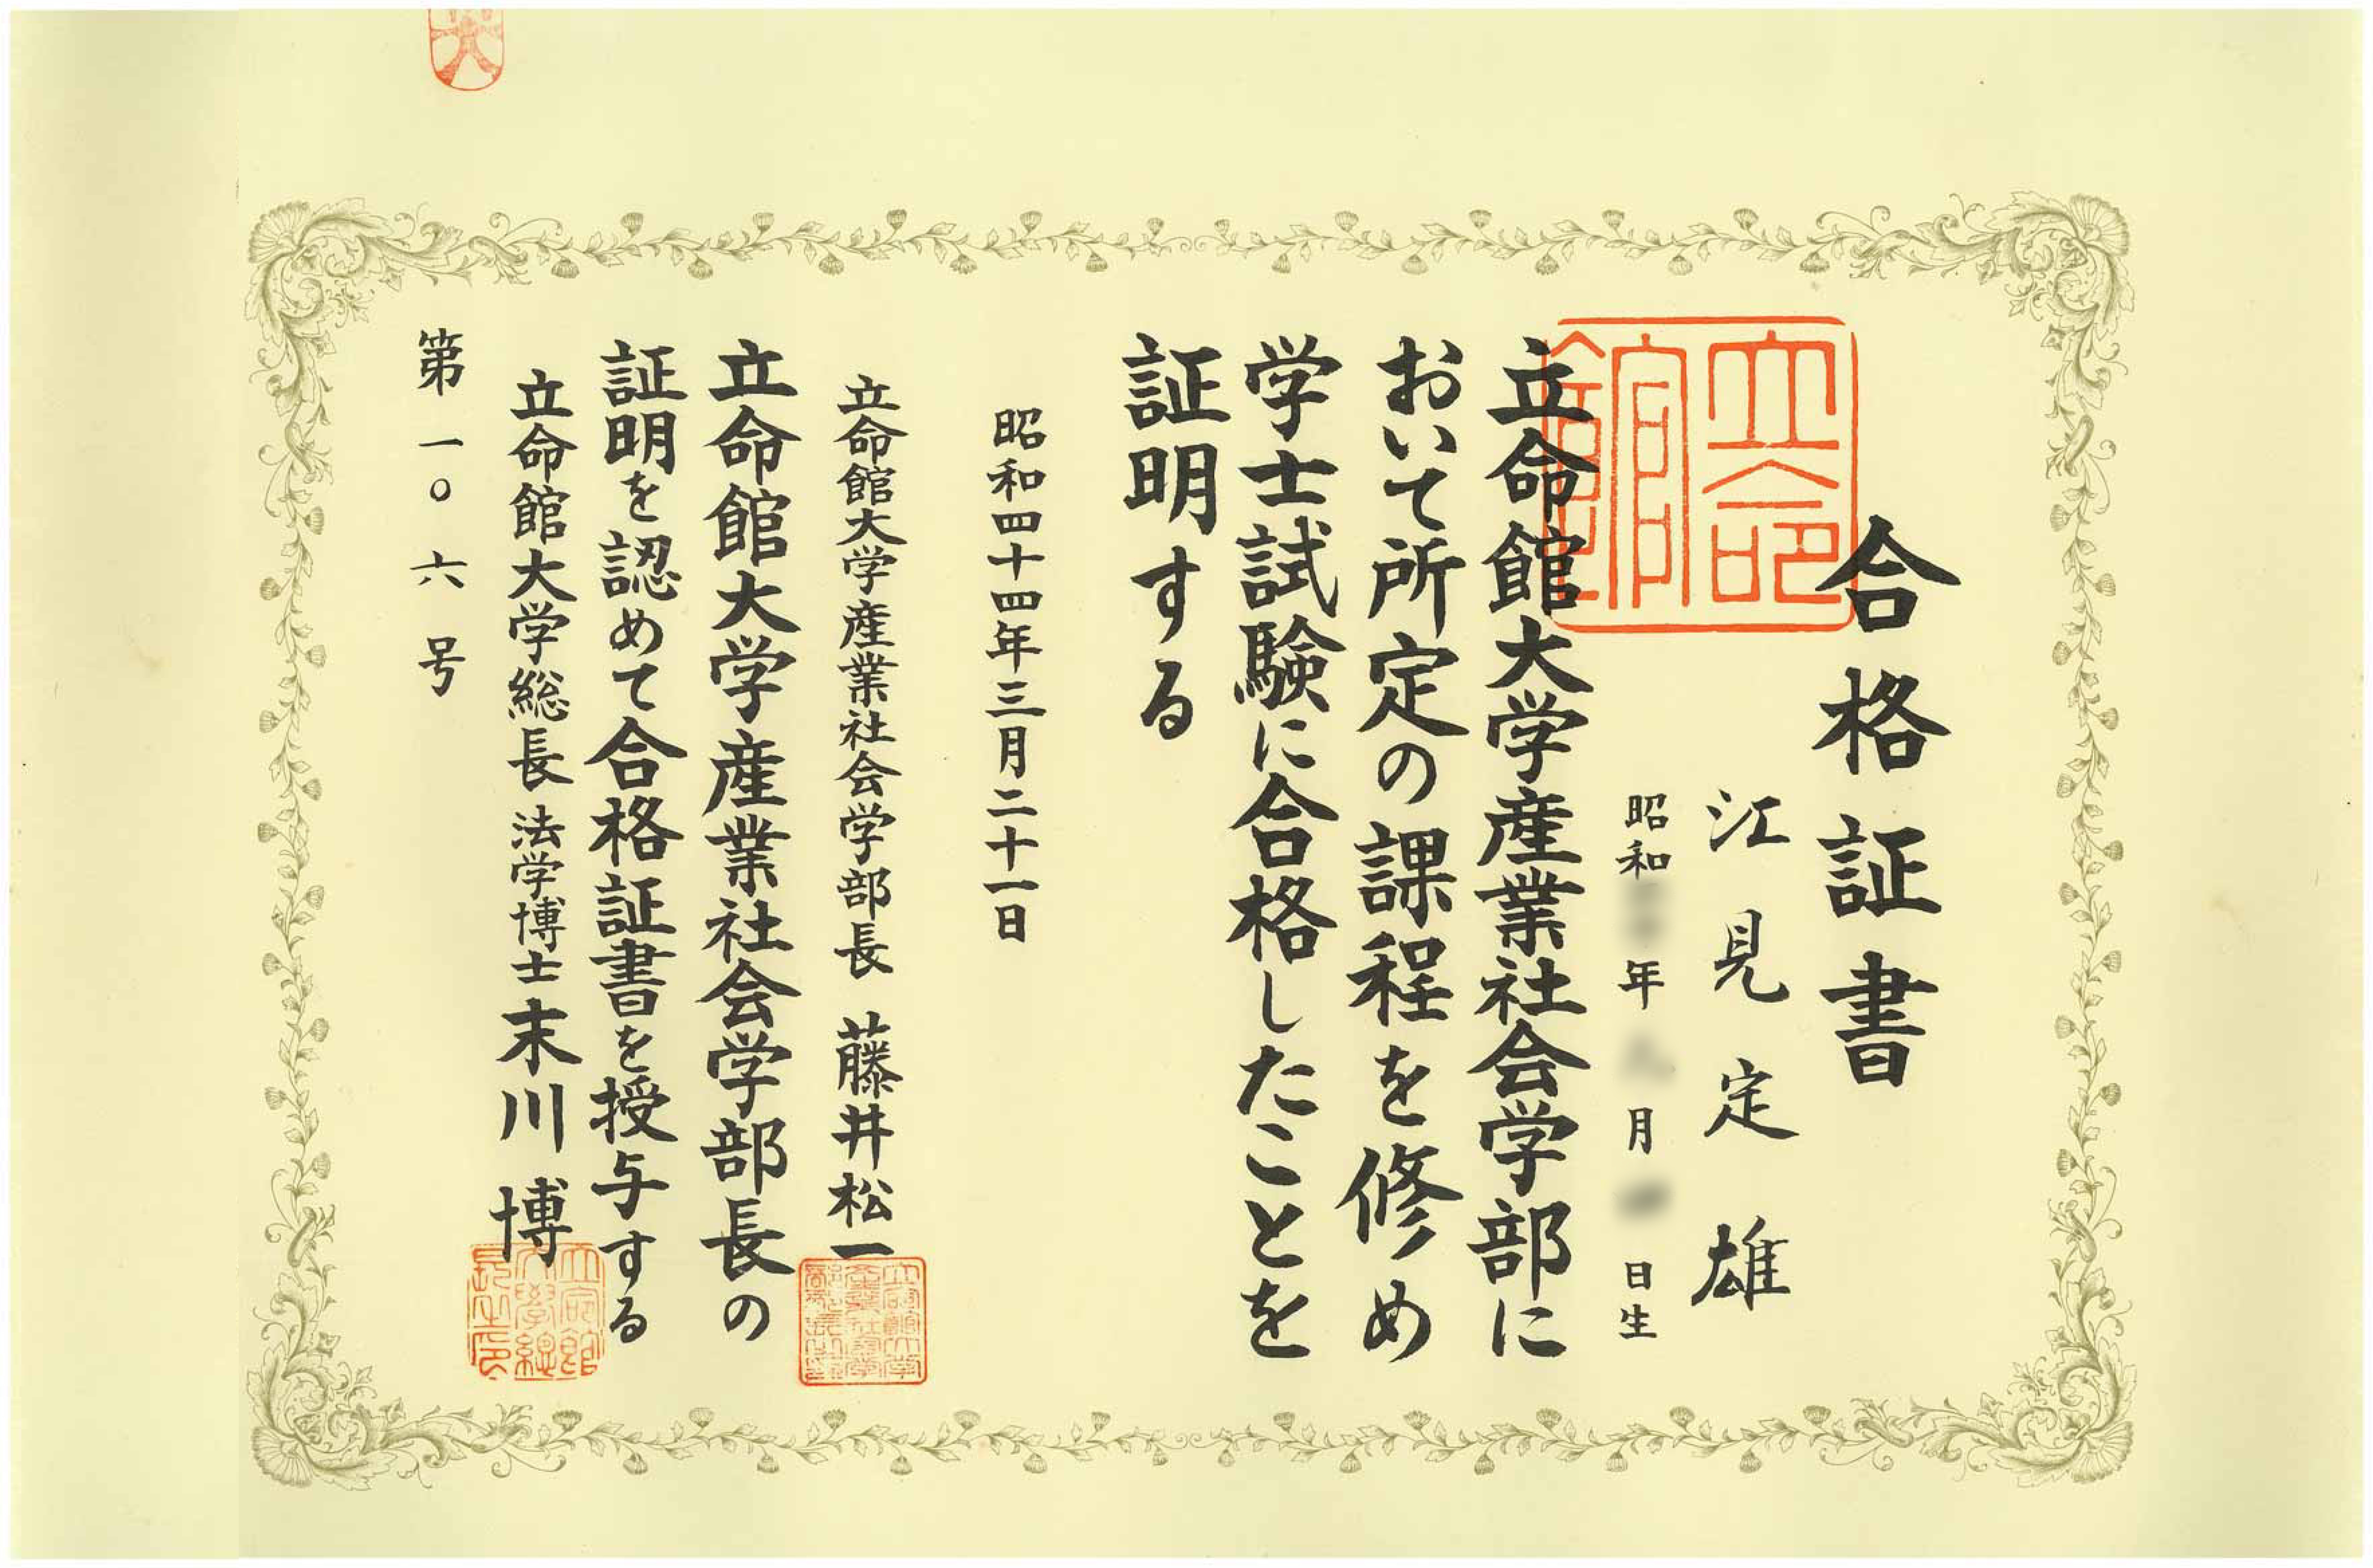 合格証書
江見定雄
昭和 年 月 日生
立命館大学産業社会学部に
おいて所定の課程を修め
学士試験に合格したことを
証明する
昭和四十四年三月二十一日
立命館大学産業社会学部長 藤井松一
立命館大学産業社会学部長の
証明を認めて合格証書を授与する
立命館大学総長 法学博士 末川博
第一〇六号
立命館